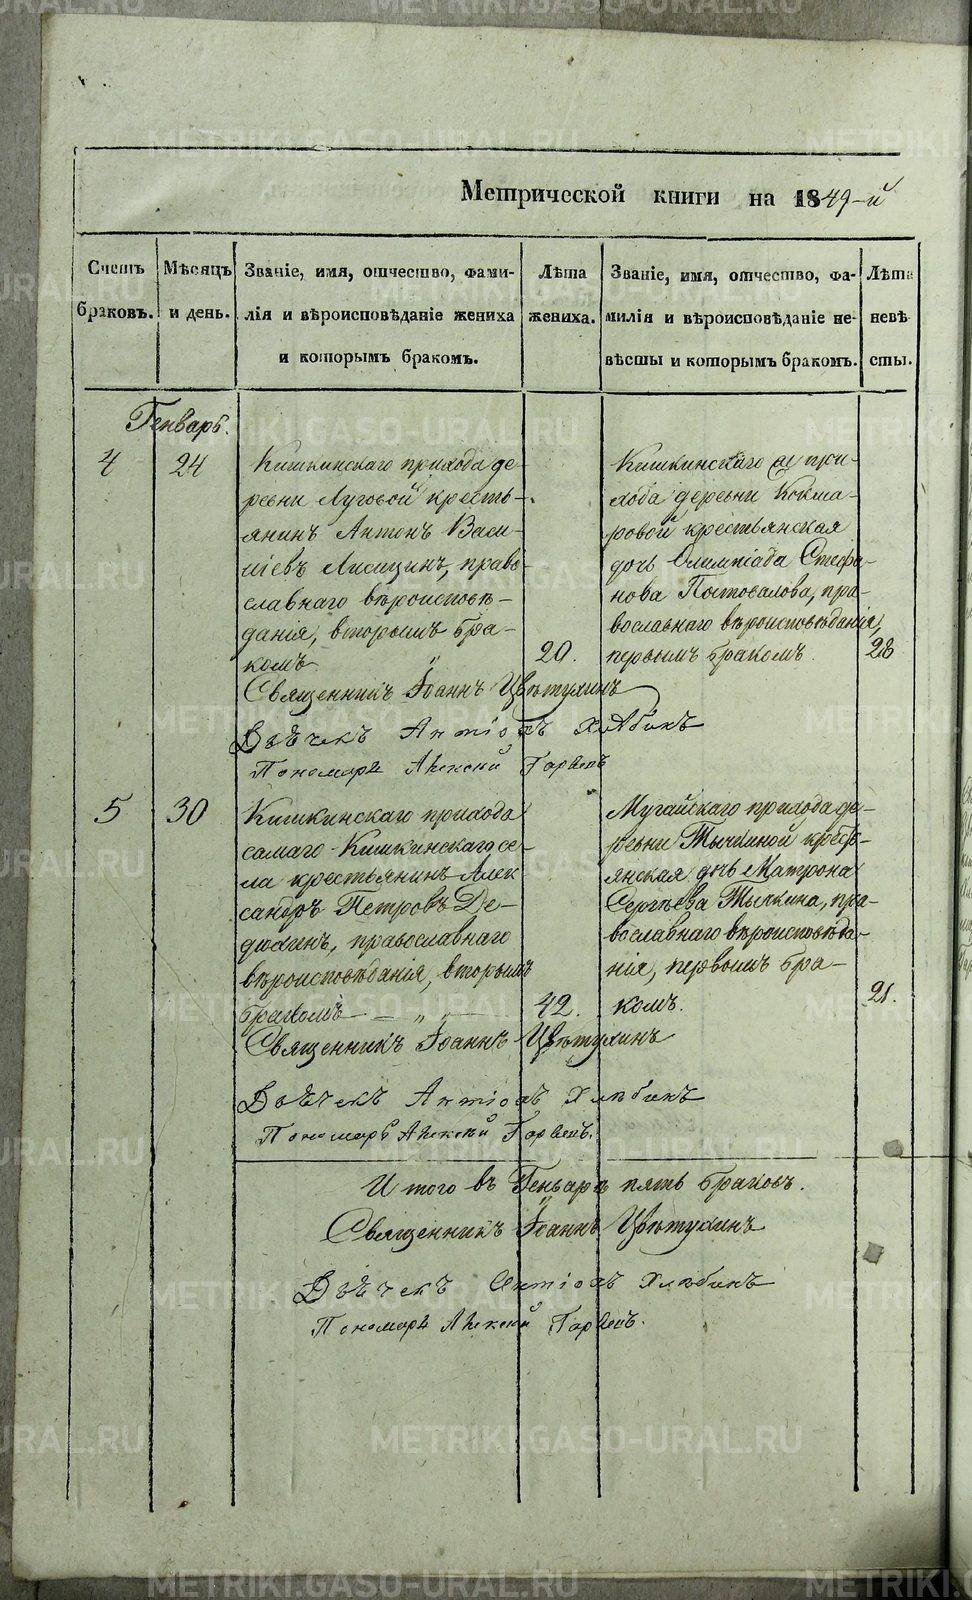 METRIKI.GASO-URAL.RU
Метрической книги на 1849-й
Счетъ браковъ.
Мѣсяцъ и день.
Званіе, имя, отчество, фами-
лія и вѣроисповѣданіе жениха
и которымъ бракомъ.
Лѣта
жениха.
Званіе, имя, отчество, фа-
милія и вѣроисповѣданіе не-
вѣсты и которымъ бракомъ.
Лѣта
невѣ-
сты.
Генварь.
4
24
Кишкинскаго прихода де-
ревни Луговой кресть-
янинъ Антонъ Васи-
ліевъ Лисицинъ, право-
славнаго вѣроисповѣ-
данія, вторымъ бра-
комъ
20.
Кишкинскаго при-
хода деревни Кокша-
ровой крестьянская
дочь Олимпіада Стефа-
нова Постовалова, пра-
вославнаго вѣроисповѣданія,
первымъ бракомъ.
28
Священникъ Іоаннъ Цвѣтухинъ
Дьячекъ Антіохъ Хлѣбинъ
Пономарь Алексій
5
30
Кишкинскаго прихода
самаго Кишкинскаго се-
ла крестьянинъ Алек
сандръ Петровъ Де-
дюхинъ, православнаго
вѣроисповѣданія, вторымъ
бракомъ
42.
Мугайскаго прихода де-
ревни Тычкиной кресть-
янская дочь Матрона
Сергѣева Тычкина, пра-
вославнаго вѣроисповѣда-
нія, первымъ бра-
комъ.
21.
Священникъ Іоаннъ Цвѣтухинъ
Дьячекъ Антіохъ Хлѣбинъ
Пономарь Алексѣй
Итого въ Генварѣ пять браковъ.
Священникъ Іоаннъ Цвѣтухинъ
Дьячекъ Антіохъ Хлѣбинъ
Пономарь Алексій